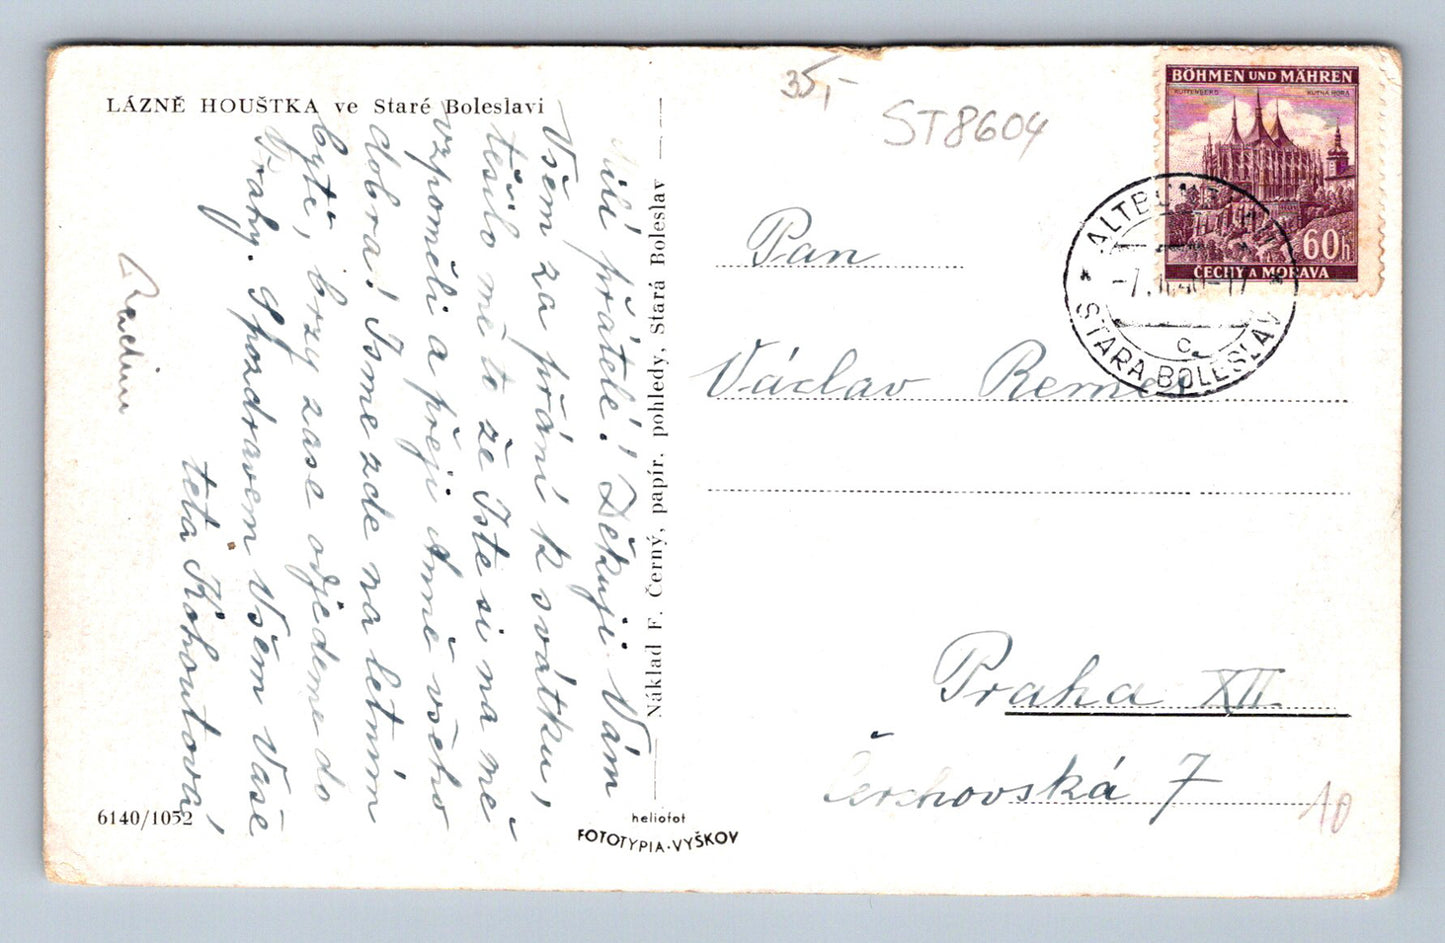 LÁZNĚ HOUŠTKA ve Staré Boleslavi
Milí přátelé! Děkuji Vám
Všem za přání k svátku,
těšilo mě to že Jste si na mě
vzpoměli a přeji Anně všeho
dobra! Jsme zde na letním
bytě, brzy zase odjedeme do
Prahy. S pozdravem Všem Vaše
teta Kohoutova,
6140/1052
Náklad F. Černý, papír. pohledy, Stará Boleslav
heliofot
FOTOTYPIA-VYŠKOV
35,-
ST8604
BÖHMEN UND MÄHREN
KUTTENBERG KUTNÁ HORA
60h
ČECHY A MORAVA
STARÁ BOLESLAV
c
Pan
Václav
Praha XII.
Čerchovská 7
10